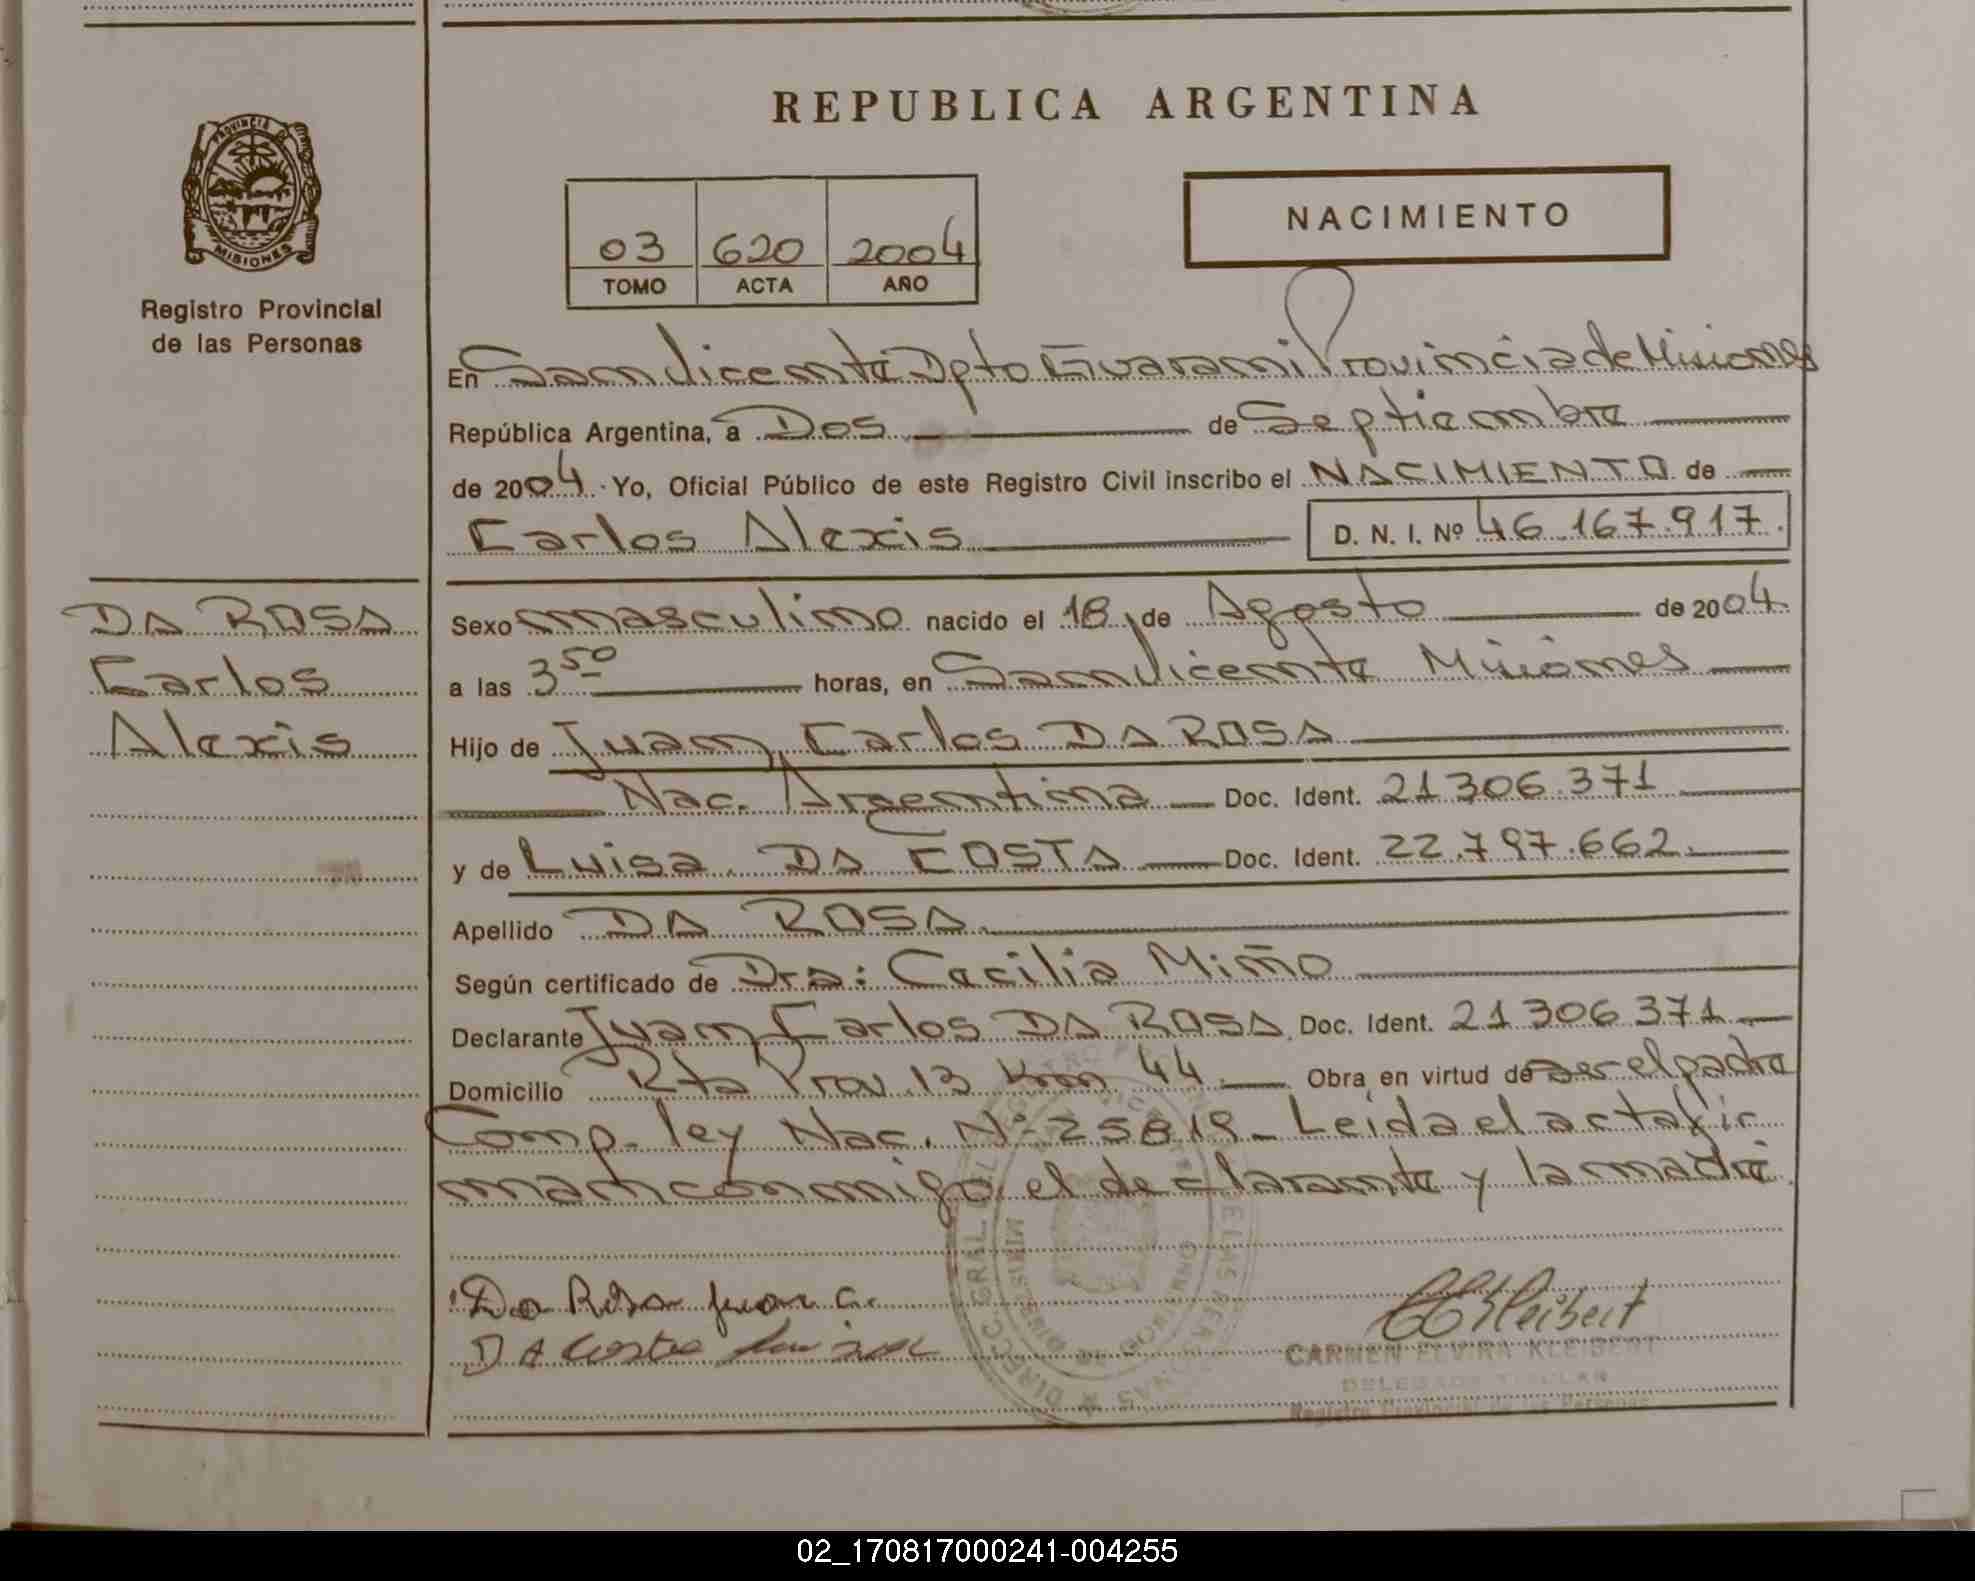 REPUBLICA ARGENTINA
PROVINCIA DE
MISIONES
Registro Provincial
de las Personas
03 620 2004
TOMO ACTA AÑO
NACIMIENTO
En San Vicente Dpto Guarani Provincia de Misiones
República Argentina, a Dos de Septiembre
de 2004. Yo, Oficial Público de este Registro Civil inscribo el NACIMIENTO de
Carlos Alexis D. N. I. Nº 46.167.917.
DA ROSA
Carlos
Alexis
Sexo masculino nacido el 18 de Agosto de 2004.
a las 3 50 horas, en San Vicente Misiones
Hijo de Juan Carlos DA ROSA
Nac. Argentina Doc. Ident. 21306.371
y de Luisa DA COSTA Doc. Ident. 22.797.662.
Apellido DA ROSA
Según certificado de Dra: Cecilia Miño
Declarante Juan Carlos DA ROSA. Doc. Ident. 21306371
Domicilio Rta Prov. 13 Km 44 Obra en virtud de ser el padre
Comp. ley Nac. Nº 25819 - Leida el acta fir
man conmigo el declarante y la madre
Da Rosa Juan C.
DA Costa Luisa
CEKleibert
CARMEN ELVIRA KLEIBERT
DELEGADA TITULAR
Registro Provincial de las Personas
02_170817000241-004255